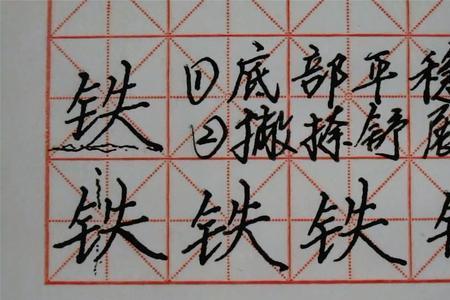 铁 ①底部平稳
②撇捺舒展
铁铁铁